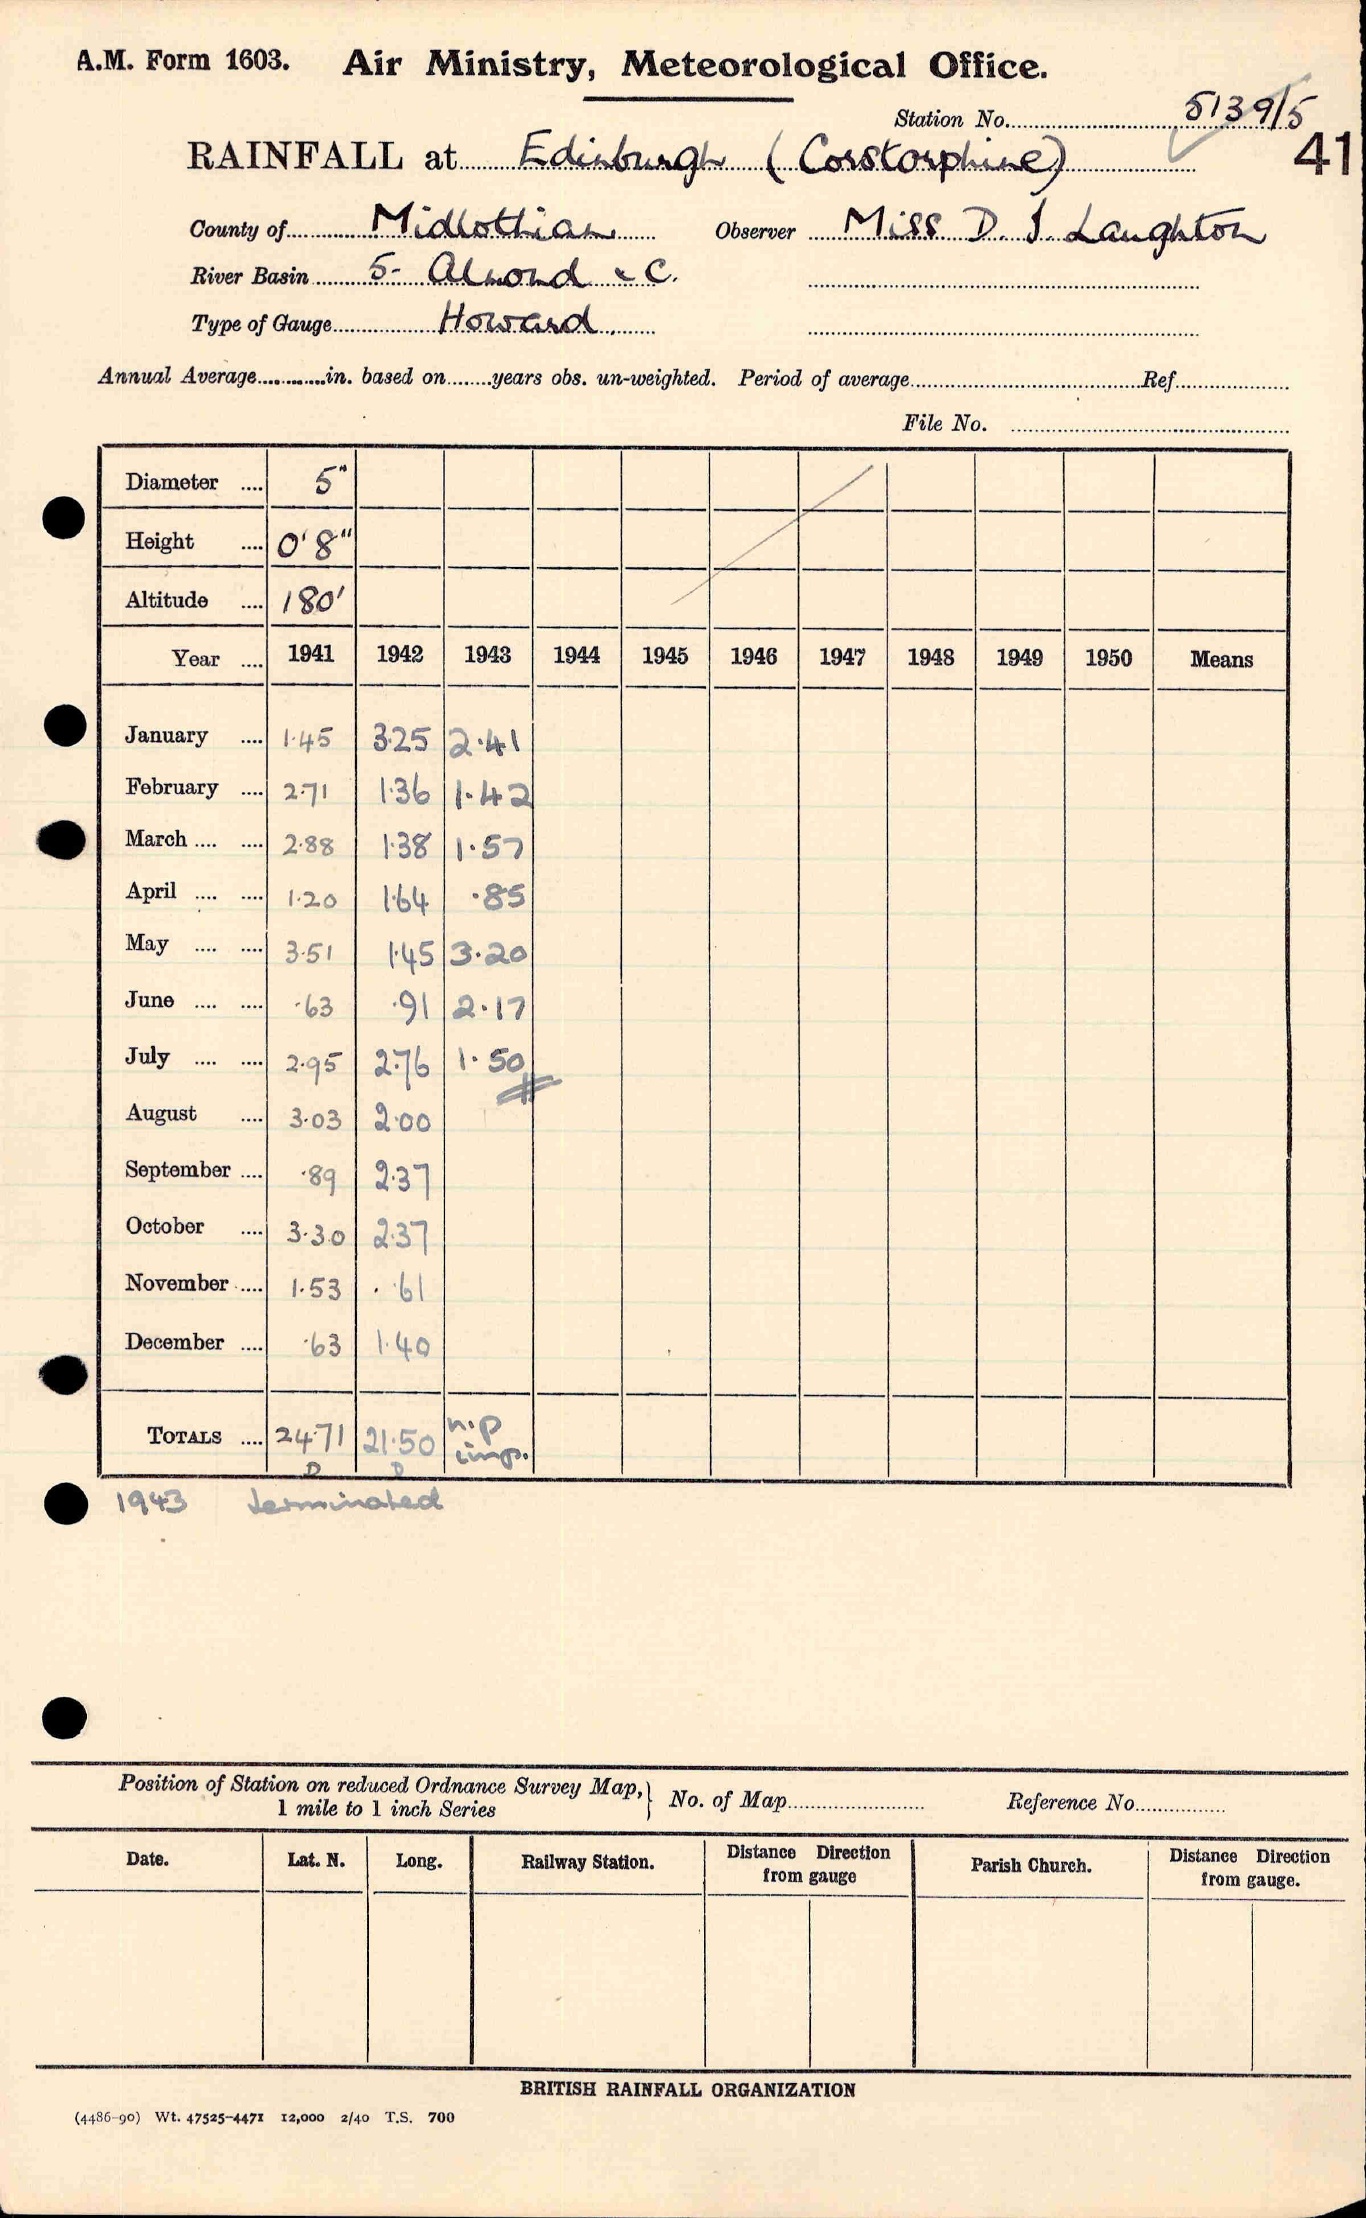 A.M. Form 1603. Air Ministry, Meteorological Office.
Station No. 5139/5
41
RAINFALL at Edinburgh (Corstorphine)
County of Midlothian Observer Miss D. I. Laughton
River Basin 5- Almond & C.
Type of Gauge Howard.
Annual Average............in. based on........years obs. un-weighted. Period of average Ref.
File No.
Diameter .... 5"
Height .... 0' 8"
Altitude .... 180'
Year .... 1941 1942 1943 1944 1945 1946 1947 1948 1949 1950 Means
January .... 1.45 3.25 2.41
February .... 2.71 1.36 1.42
March .... .... 2.88 1.38 1.57
April .... .... 1.20 1.64 .85
May .... .... 3.51 1.45 3.20
June .... .... .63 .91 2.17
July .... .... 2.95 2.76 1.50
August .... 3.03 2.00
September .... .89 2.37
October .... 3.30 2.37
November .... 1.53 .61
December .... .63 1.40
TOTALS .... 24.71 21.50 n.p
D D imp.
1943 terminated
Position of Station on reduced Ordnance Survey Map, No. of Map Reference No.
1 mile to 1 inch Series
Date. Lat. N. Long. Railway Station. Distance Direction from gauge Parish Church. Distance Direction from gauge.
BRITISH RAINFALL ORGANIZATION
(4486-90) Wt. 47525-4471 12,000 2/40 T.S. 700